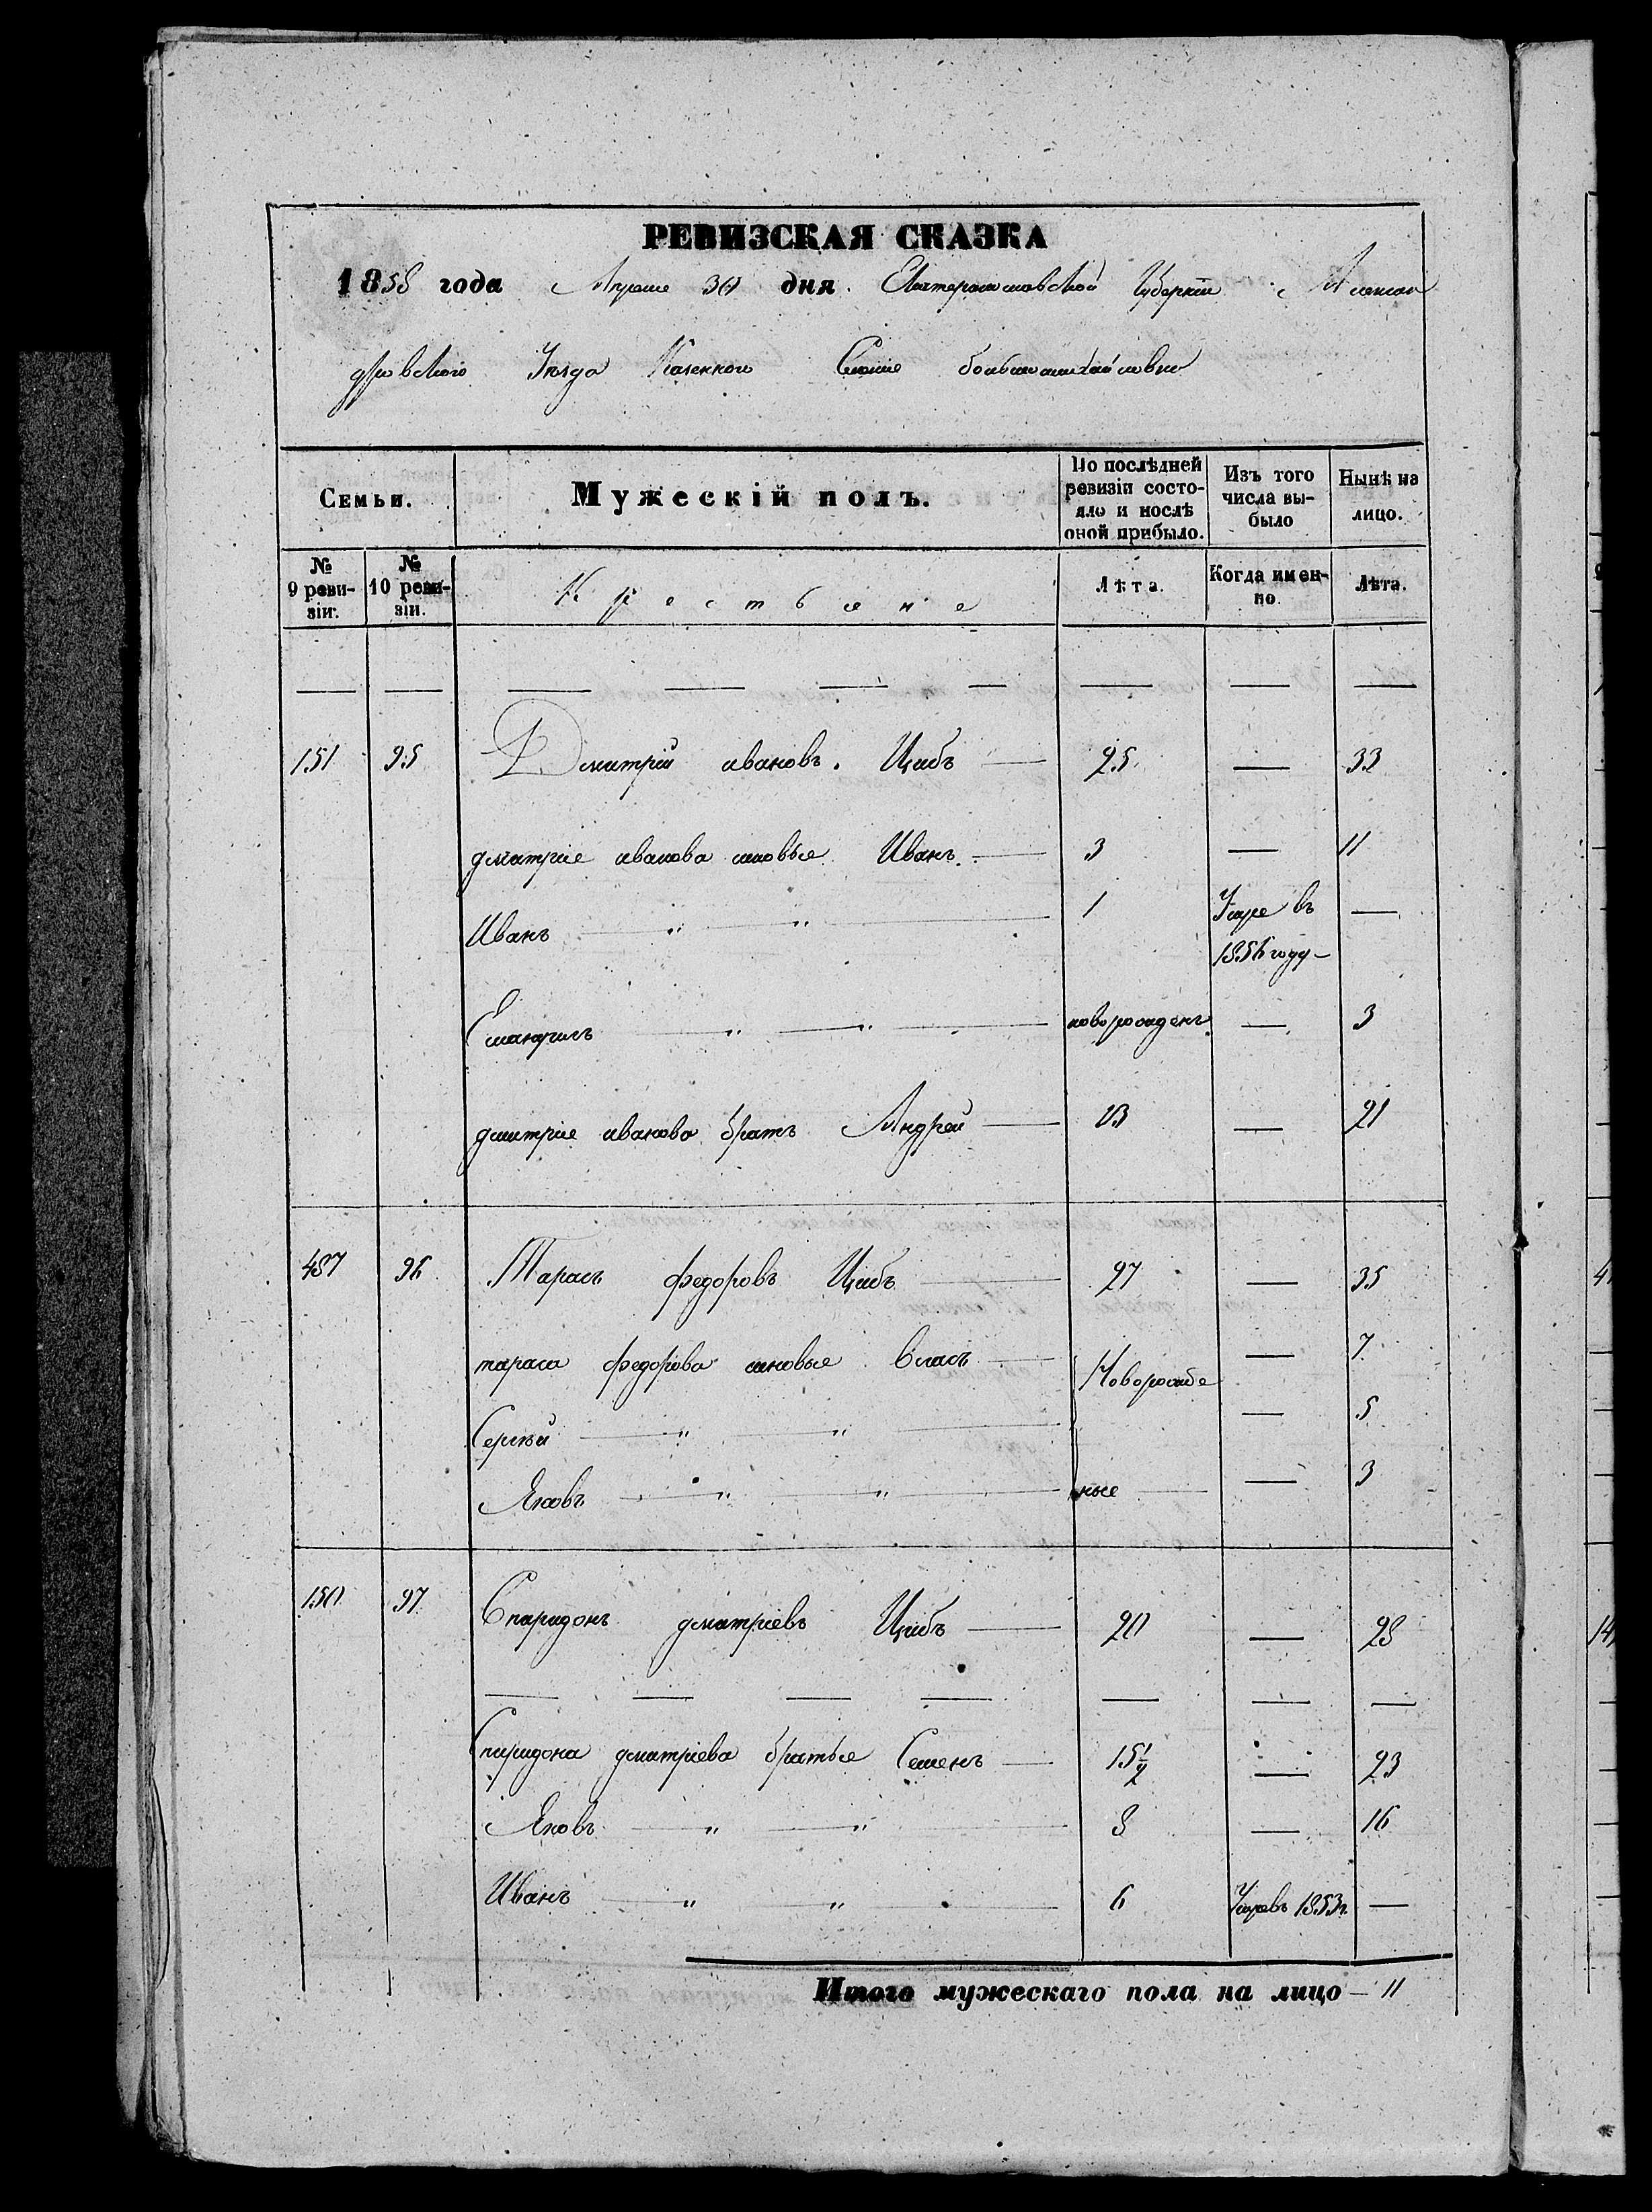 РЕВИЗСКАЯ СКАЗКА
1858 года Апреля 30 дня Екатеринославской Губернии Алексан
дровского Уезда Казенного Селения большемихайловки
Семьи. Мужескій полъ. По послѣдней ревизіи состояло и послѣ оной прибыло. Изъ того числа выбыло Нынѣ на лицо.
№ 9 ревизіи. № 10 ревизіи. Крестьяне Лѣта. Когда именно. Лѣта.
151 95 Дмитрій ивановъ Цибъ 25 — 33
дмитрие иванова сыновье Иванъ 3 — 11
Иванъ " " 1 Умре въ —
1856 году
Емануилъ " " новорожденъ — 3
дмитрие иванова братъ Андрей 13 — 21
487 96 Тарасъ федоровъ Цибъ 27 — 35
тараса федорова сыновье Власъ Новорожде — 7
Сергѣй " " — 5
Яковъ " " ные — 3
150 97 Спиридонъ дмитріевъ Цибъ 20 — 28
Спиридона дмитріева братье Семенъ 15½ — 23
Яковъ " " 8 — 16
Иванъ " " 6 Умре въ 1853 г. —
Итого мужескаго пола на лицо — 11